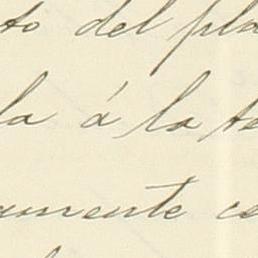 to del pla
la á la te
amente ce